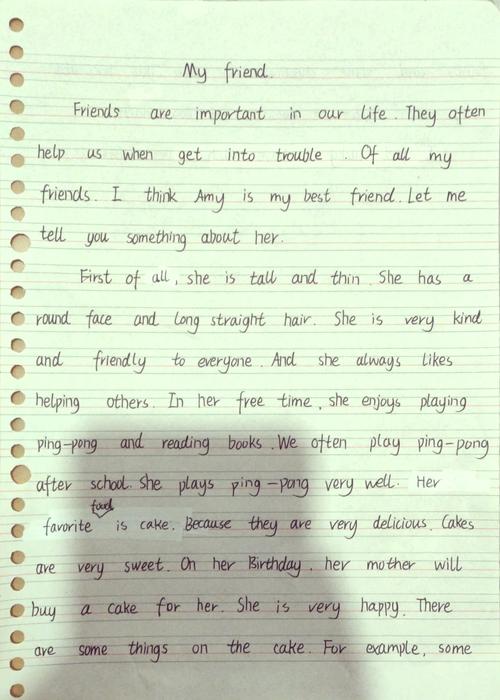 My friend.
Friends are important in our life. They often
help us when get into trouble. Of all my
friends. I think Amy is my best friend. Let me
tell you something about her.
First of all, she is tall and thin. She has a
round face and long straight hair. She is very kind
and friendly to everyone. And she always likes
helping others. In her free time, she enjoys playing
ping-pong and reading books. We often play ping-pong
after school. She plays ping-pong very well. Her
favorite food is cake. Because they are very delicious. Cakes
are very sweet. On her Birthday. her mother will
buy a cake for her. She is very happy. There
are some things on the cake. For example, some